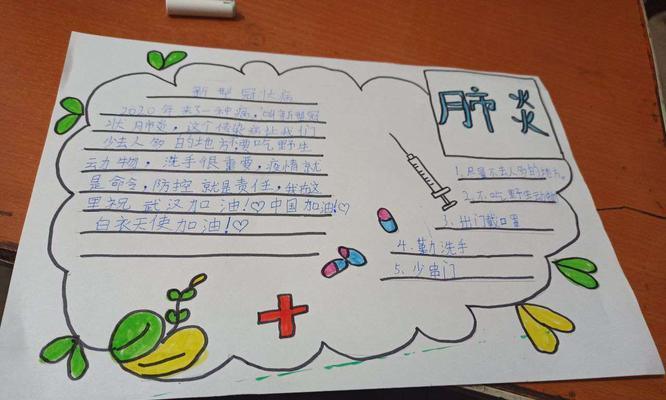 新型冠状病
2020年来了一种病,叫新型冠
状肺炎,这个传染病让我们
少去人多的地方要吃野生
动物,洗手很重要,疫情就
是命令,防控就是责任,我在这
里祝武汉加油!♡中国加油!♡
白衣天使加油!♡
肺炎
1、尽量不去人多的地方。
2、不吃野生动物
3、出门戴口罩
4、勤洗手
5、少串门